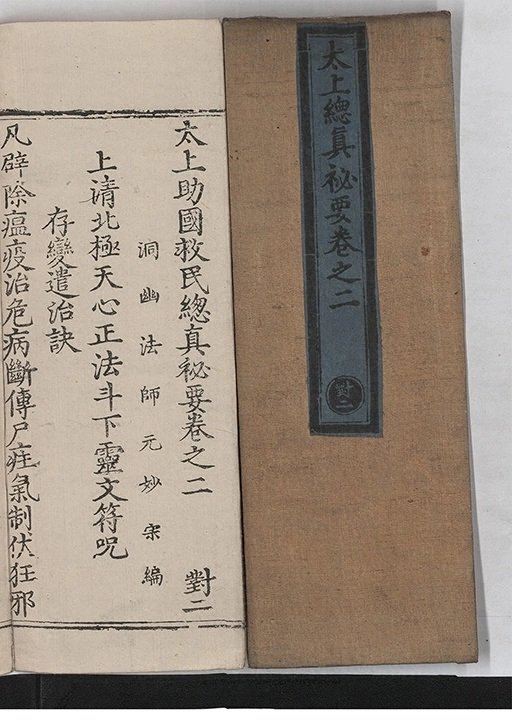 太上總真祕要卷之二
對二
太上助國救民總真祕要卷之二 對二
洞幽法師元妙宗編
上清北極天心正法斗下靈文符呪
存變遣治訣
凡辟除瘟疫治危病斷傳尸疰氣制伏狂邪